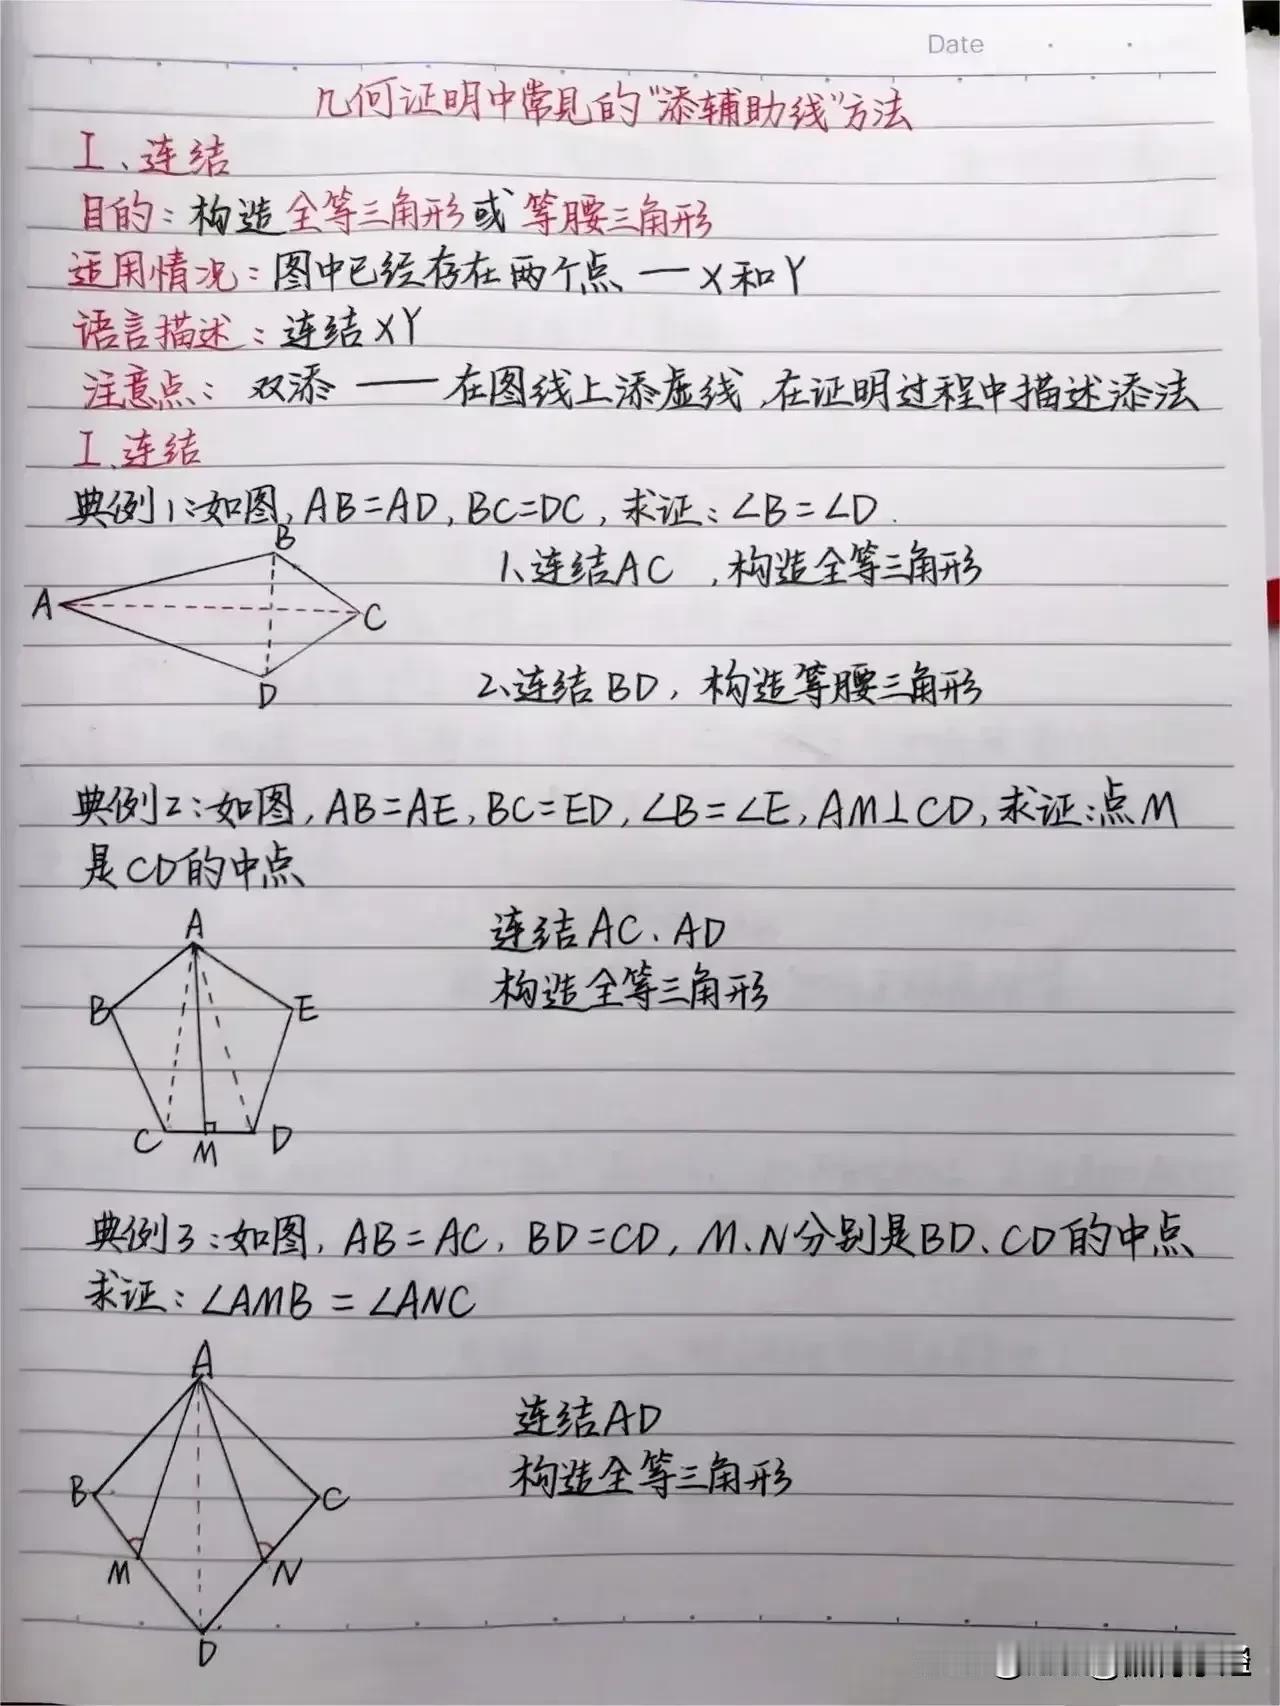 Date
几何证明中常见的“添辅助线”方法
I、连结
目的：构造全等三角形或等腰三角形
适用情况：图中已经存在两个点 — X和Y
语言描述：连结XY
注意点： 双添 —— 在图线上添虚线，在证明过程中描述添法
I、连结
典例1：如图，AB=AD，BC=DC，求证：∠B=∠D.
1、连结AC ，构造全等三角形
2、连结BD，构造等腰三角形
B
A
C
D
典例2：如图，AB=AE，BC=ED，∠B=∠E，AM⊥CD，求证：点M
是CD的中点
连结AC、AD
构造全等三角形
A
B
E
C
M
D
典例3：如图，AB=AC，BD=CD，M、N分别是BD、CD的中点
求证：∠AMB=∠ANC
连结AD
构造全等三角形
A
B
C
M
N
D